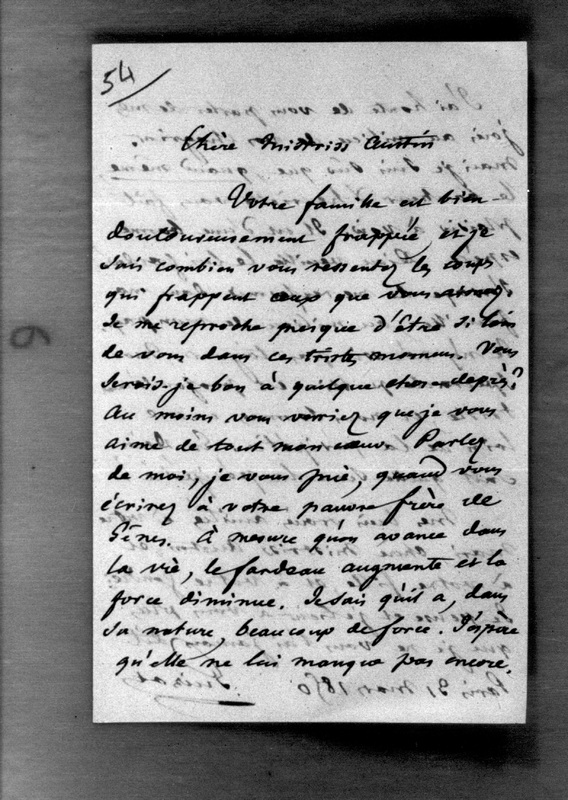 54
Chère Mistriss Austin
Votre famille est bien
douloureusement frappée, et je
sais combien vous ressentez les coups
qui frappent ceux que vous aimez.
Je me reproche presque d'être si loin
de vous dans ces tristes momens. Vous
serois-je bon à quelque chose de près?
Au moins vous verriez que je vous
aime de tout mon cœur. Parlez
de moi, je vous prie, quand vous
écrirez à votre pauvre frère de
Gênes. À mesure qu'on avance dans
la vie, le fardeau augmente et la
force diminue. Je sais qu'il a, dans
sa nature, beaucoup de force. J'espère
qu'elle ne lui manque pas encore.
Paris 31 mars 1850
Guizot